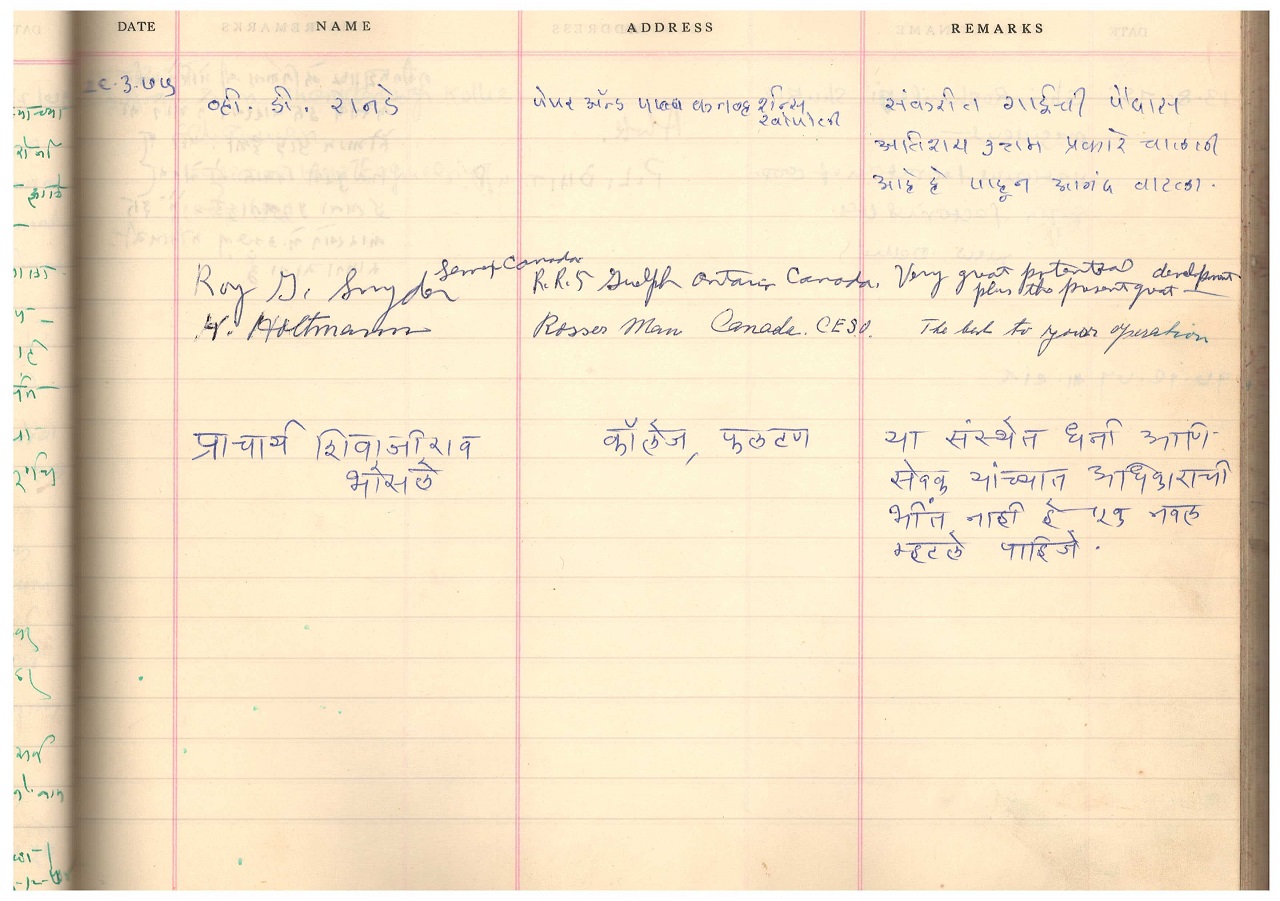 DATE NAME ADDRESS REMARKS
व्ही. डी. रानडे पेपर अॅन्ड पल्प
संकरीत गाईंची पैदास
अतिशय उत्तम प्रकारे चालली
आहे हे पाहून आनंद वाटला.
Roy G. Snyder Semex Canada R.R.5 Guelph Ontario Canada. Very great potential development
plus the present great
H. Holtmann Rosser Man Canada. CESO. The best to your operation
प्राचार्य शिवाजीराव कॉलेज, फलटण या संस्थेत धनी आणि
भोसले सेवक यांच्यात अधिकाराची
भिंत नाही हे एक नवल
म्हटले पाहिजे.